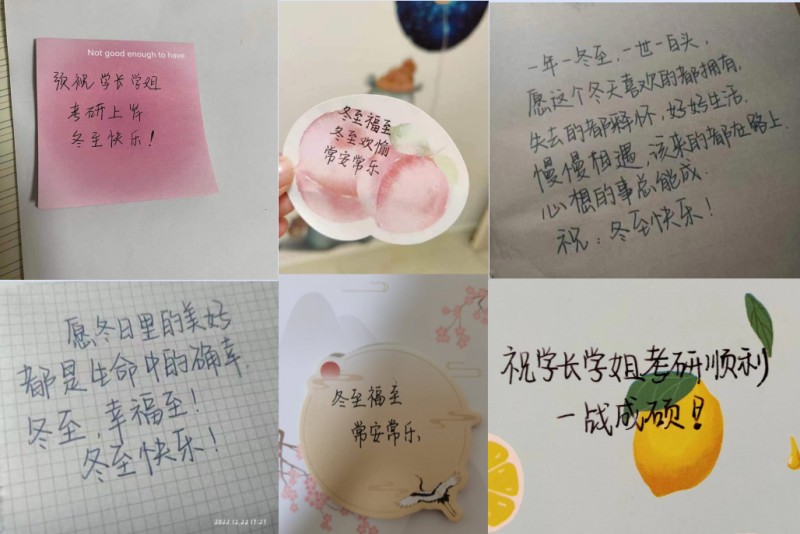 Not good enough to have
预祝学长学姐
考研上岸
冬至快乐!
冬至福至
冬至欢愉
常安常乐
一年一冬至,一世一白头,
愿这个冬天喜欢的都拥有,
失去的都释怀,好好生活,
慢慢相遇,该来的都在路上.
心想的事总能成.
祝:冬至快乐!
愿冬日里的美好
都是生命中的确幸
冬至,幸福至!
冬至快乐!
2022.12.22 17:21
冬至福至
常安常乐,
祝学长学姐考研顺利
一战成硕!